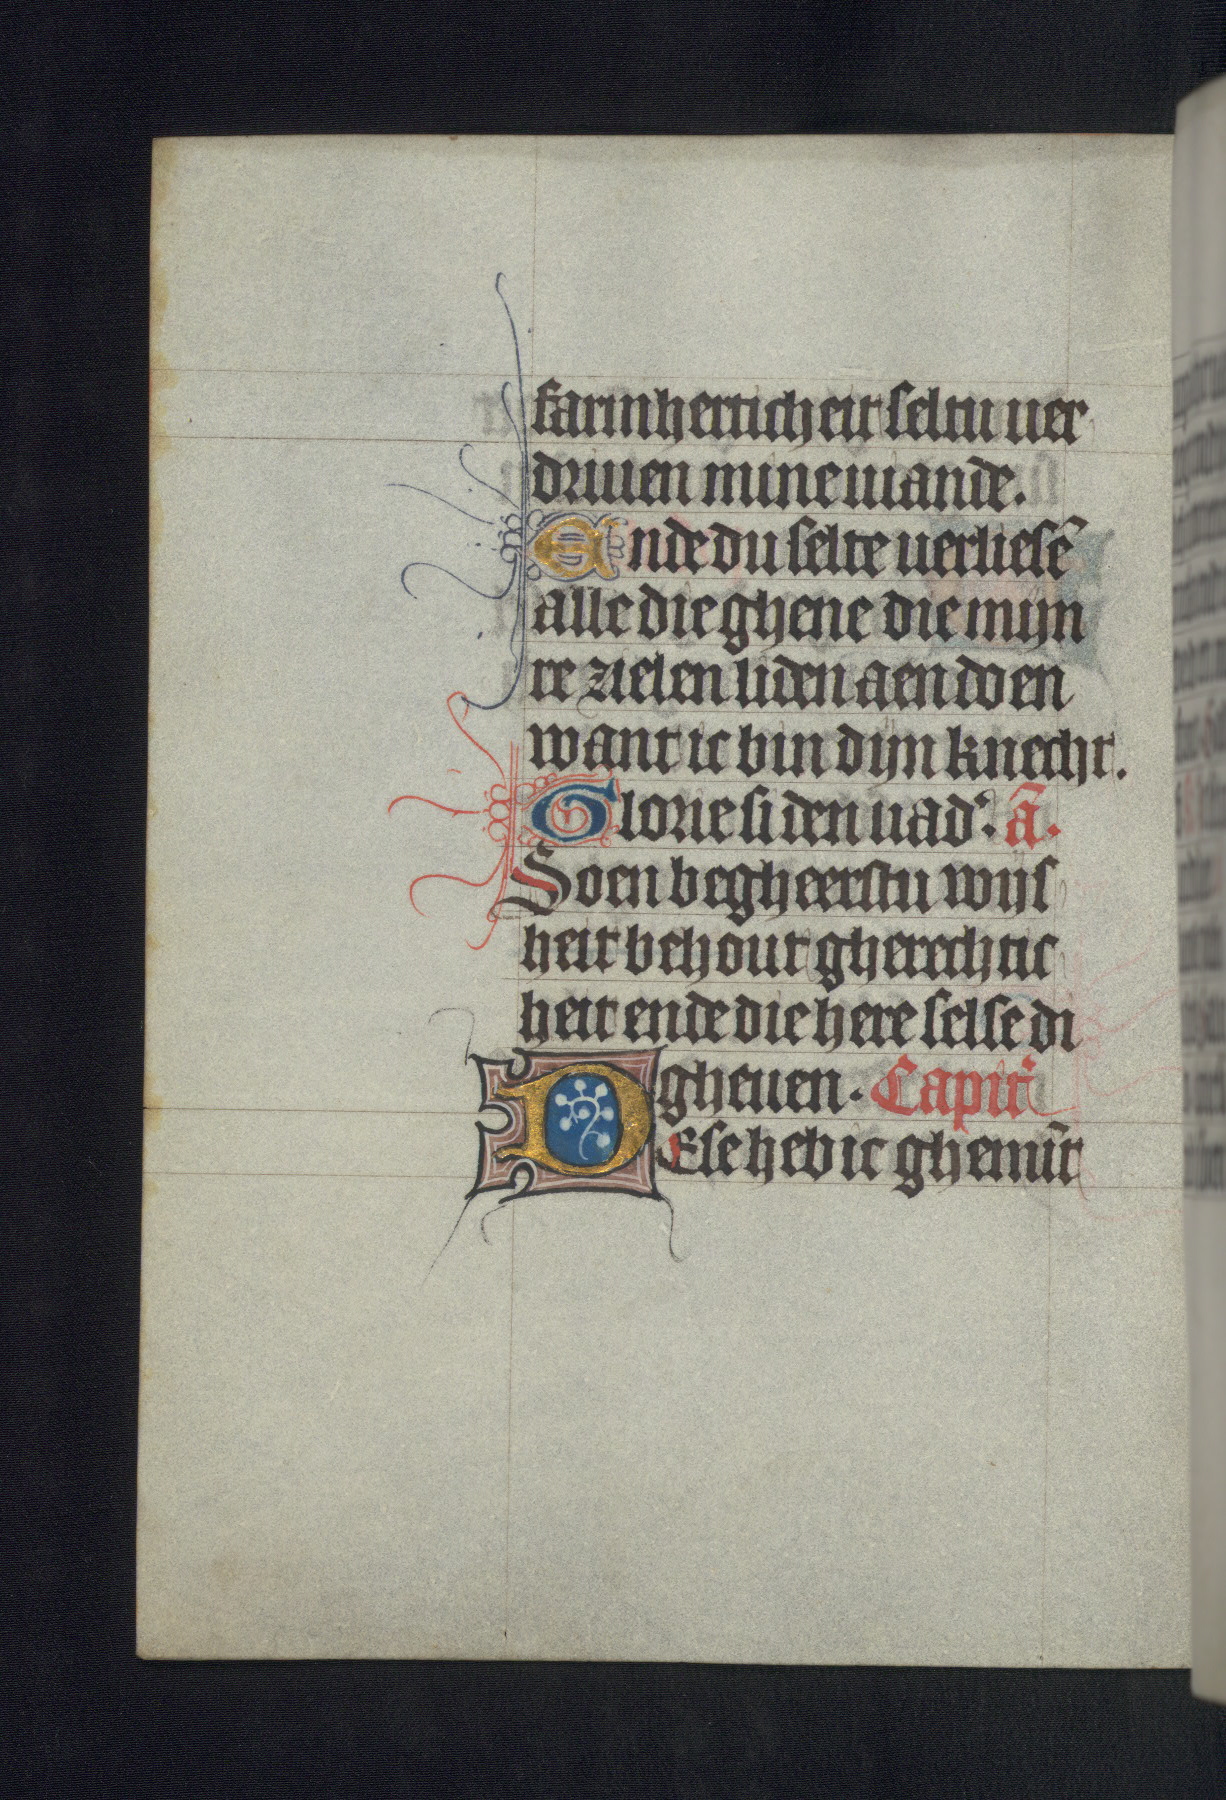 farmherticheit seltu uer
driuen mine uiande.
Ende du selte uerliesē
alle die ghene die mijn
re zielen liden aen doen
want ic bin dijn knecht.
Glorie si den uad'. ā.
Soen begheerstu wijs
heit behout gherechtic
heit ende die here selse di
gheuen. Capit'
Dese heb ic ghemīt